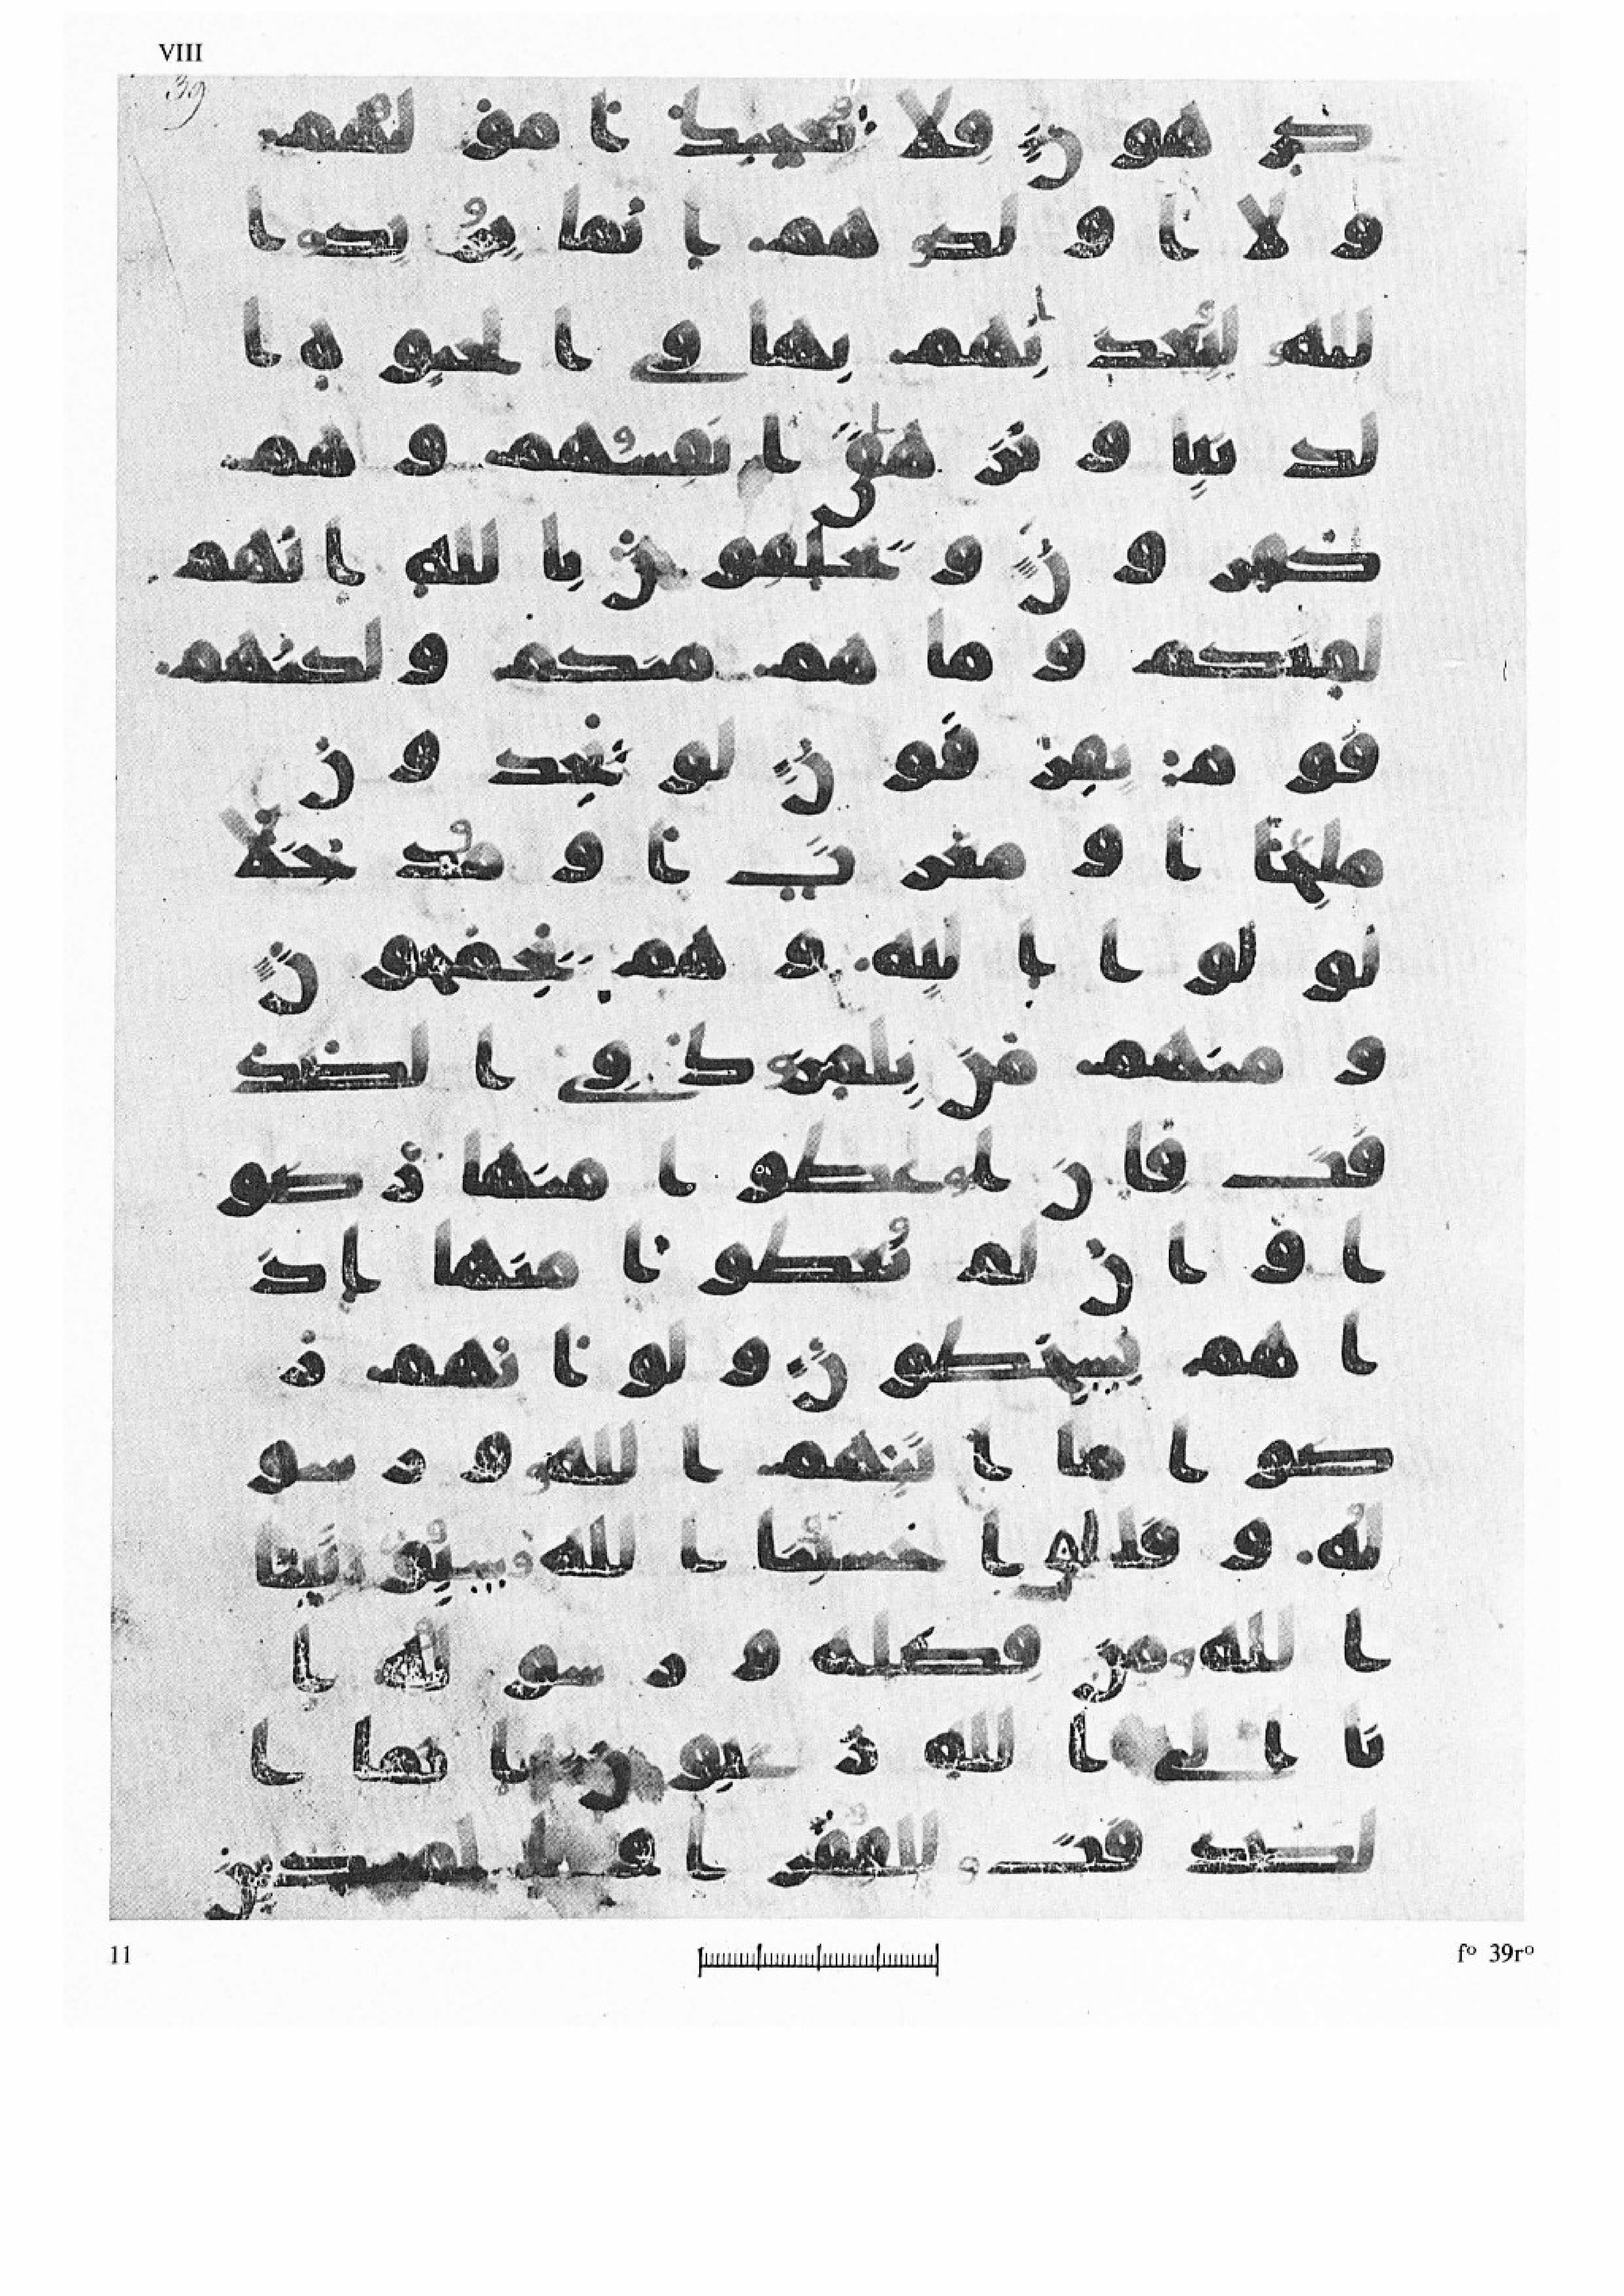 VIII
39
كر هو ن فلا تعجبك ا مو لهم
و لا ا و لد هم ا نما ير يد ا
لله ليعذ بهم بها في ا لحيو ة ا
لد نيا و تز هق ا نفسهم و هم
كفر و ن و يحلفو ن با لله ا نهم
لمنكم و ما هم منكم و لكنهم
قو م يفر قو ن لو يجد و ن
ملجا ا و مغر ت ا و مد خلا
لو لو ا ا ليه و هم يجمحو ن
و منهم من يلمز ك في ا لصد
قت فا ن ا عطو ا منها ر ضو
ا و ا ن لم يعطو ا منها ا ذ
ا هم يسخطو ن و لو ا نهم ر
ضو ا ما ا تيهم ا لله و ر سو
له و قا لو ا حسبنا ا لله سيو تينا
ا لله من فضله و ر سو له ا
نا ا لى ا لله ر غبو ن ا نما ا
لصد قت للفقر ا و ا لمسكين
11
fº 39rº